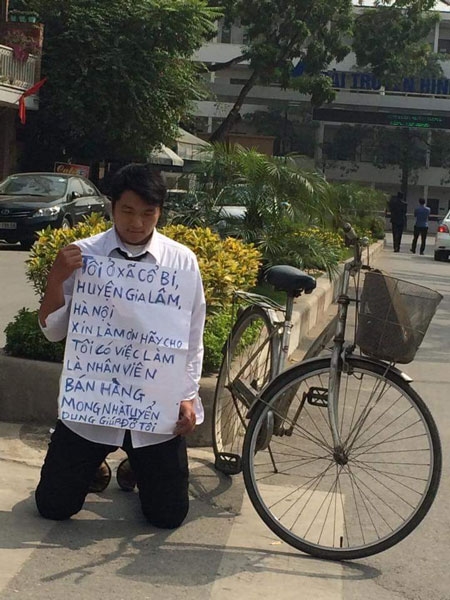 TÔI Ở XÃ CỔ BI,
HUYỆN GIA LÂM,
HÀ NỘI
XIN LÀM ƠN HÃY CHO
TÔI CÓ VIỆC LÀM
LÀ NHÂN VIÊN
BÁN HÀNG
MONG NHÀ TUYỂN
DỤNG GIÚP ĐỠ TÔI
ĐÀI TRUYỀN HÌNH